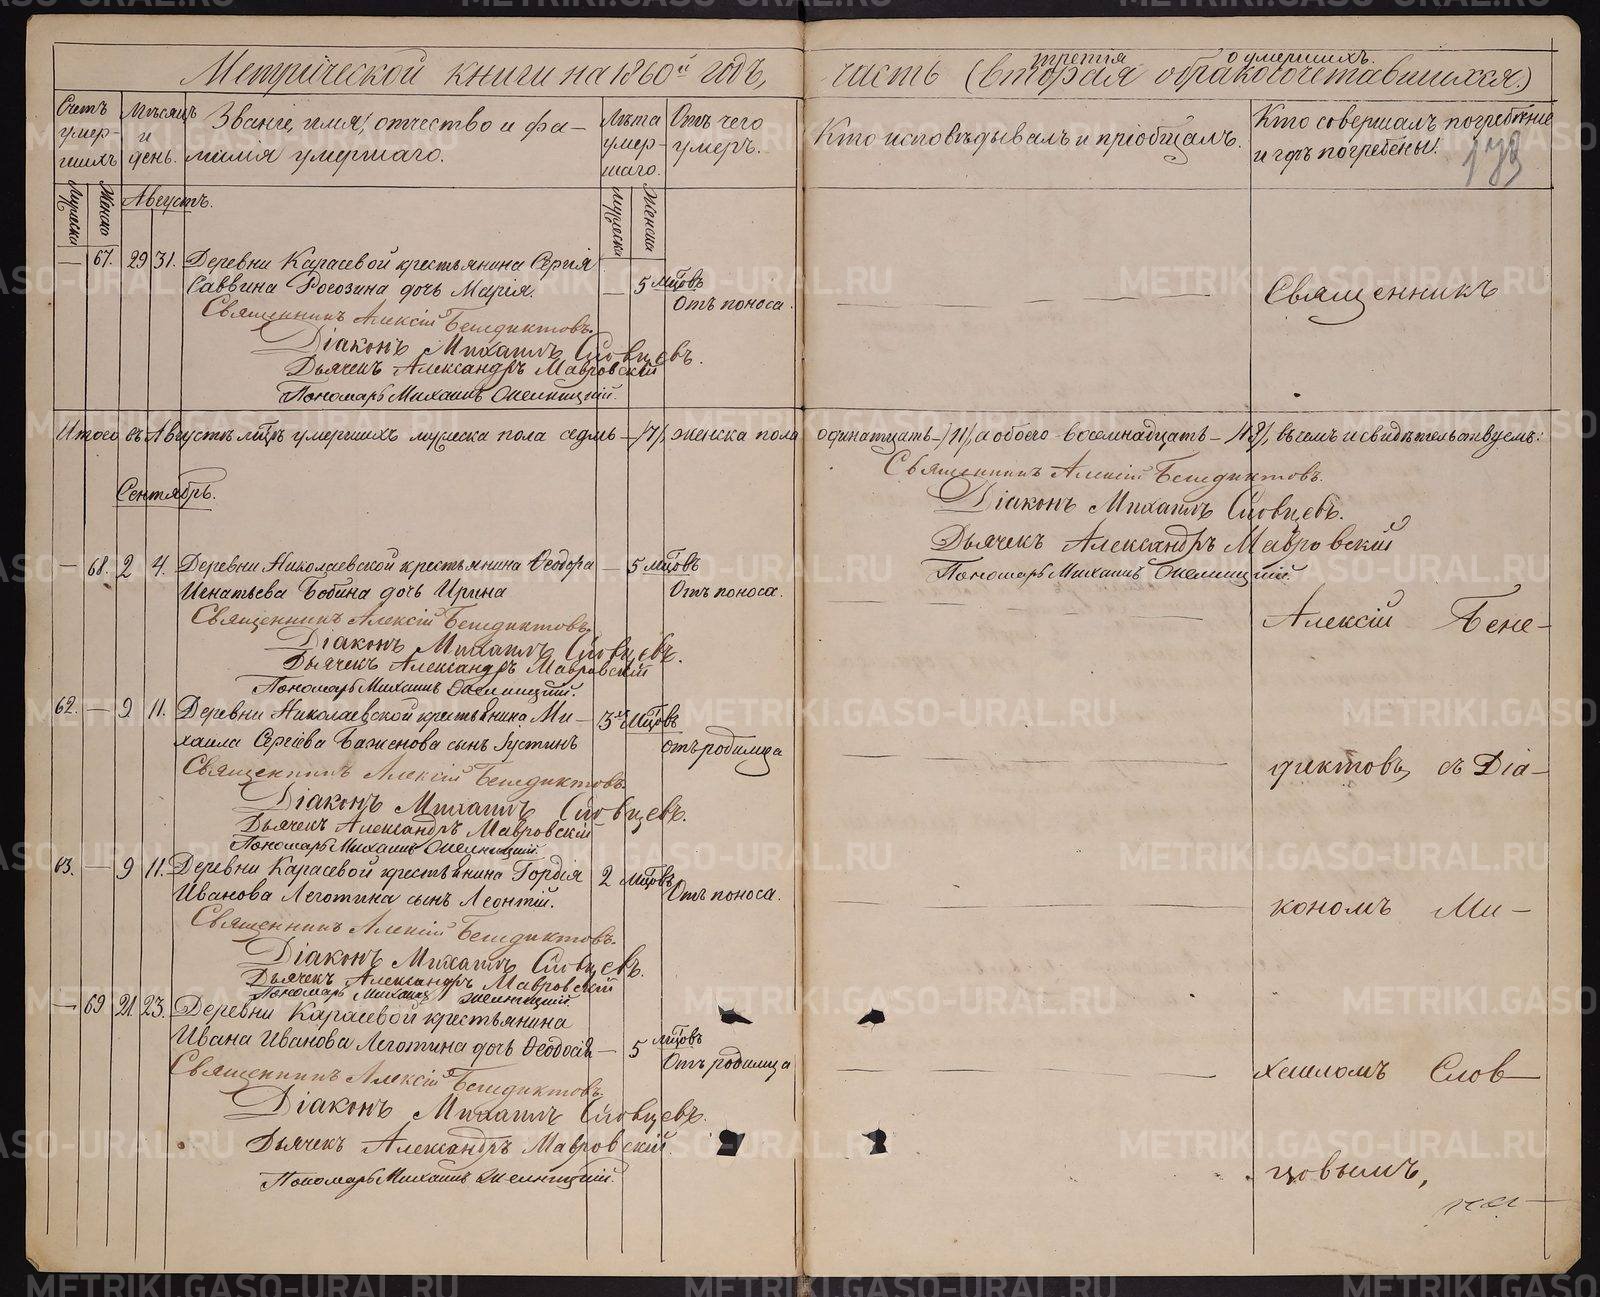 Метрической книги на 1860й годъ, часть (вторая о бракосочетавшихся.)
третія о умершихъ.
Счетъ умер-шихъ
Мѣсяцъ и день.
Званіе, имя, отчество и фа-
милія умершаго.
Лѣта умер-шаго.
Отъ чего умеръ.
Кто исповѣдывалъ и пріобщалъ.
Кто совершалъ погребеніе
и гдѣ погребены.
173
Мужска
Женска
Августъ.
Мужска
Женска
— 67. 29 31. Деревни Карасевой крестьянина Сергія
Саввина Рогозина дочь Марія. — 5 мцовъ
Отъ поноса.
Священникъ
Священникъ Алексій Бенедиктовъ.
Діаконъ Михаилъ Словцевъ.
Дьячекъ Александръ Мавровскій
Пономарь Михаилъ
Итого въ Августѣ мцѣ умершихъ мужеска пола седмь —/7/, женска пола одинатцать —/11/, а обоего восемнадцать —/18/, въ чемъ и свидѣтельствуемъ:
Священникъ Алексій Бенедиктовъ.
Діаконъ Михаилъ Словцевъ.
Дьячекъ Александръ Мавровскій
Пономарь Михаилъ
Сентябрь.
— 68. 2 4. Деревни Николаевской крестьянина Ѳеодора — 5 мцовъ
Игнатьева Бабина дочь Ирина Отъ поноса.
Алексій Бене-
Священникъ Алексій Бенедиктовъ.
Діаконъ Михаилъ Словцевъ.
Дьячекъ Александръ Мавровскій
Пономарь Михаилъ
62. — 9 11. Деревни Николаевской крестьянина Ми- 3хъ мцовъ
хаила Сергѣева Баженова сынъ Іустинъ отъ родимца
диктовъ съ Діа-
Священникъ Алексій Бенедиктовъ.
Діаконъ Михаилъ Словцевъ.
Дьячекъ Александръ Мавровскій
Пономарь Михаилъ
63. — 9 11. Деревни Карасевой крестьянина Гордія 2 мцовъ
Иванова Леготина сынъ Леонтій. Отъ поноса.
кономъ Ми-
Священникъ Алексій Бенедиктовъ.
Діаконъ Михаилъ Словцевъ.
Дьячекъ Александръ Мавровскій
Пономарь Михаилъ
— 69 21 23. Деревни Карасевой крестьянина
Ивана Иванова Леготина дочь Ѳеодосія — 5 мцовъ
Отъ родимца
хаиломъ Слов-
Священникъ Алексій Бенедиктовъ.
Діаконъ Михаилъ Словцевъ.
Дьячекъ Александръ Мавровскій.
Пономарь Михаилъ
цовымъ,
на-
METRIKI.GASO-URAL.RU